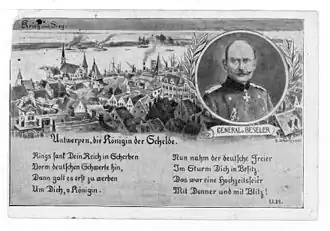 Krieg und Sieg.
GENERAL v. BESELER
Antwerpen, die Königin der Schelde.
Rings sank Dein Reich in Scherben
Vorm deutschen Schwerte hin,
Dann galt es erst zu werben
Um Dich, o Königin.
Nun nahm der deutsche Freier
Im Sturm Dich in Besitz.
Das war eine Hochzeitsfeier
Mit Donner und mit Blitz!